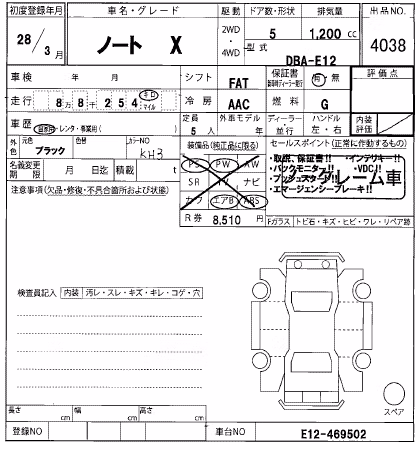 初度登録年月 車名・グレード 駆動 ドア数・形状 排気量 出品NO
28/3月 ノート X 2WD・4WD 5 1,200cc 4038
型式 DBA-E12
車検 年 月 シフト FAT 保証書 有・無 評価点
走行 8万8千254 キロ マイル 冷房 AAC 燃料 G
車歴 自家用・レンタ・事業用( ) 定員 5人 外車モデル 年 ディーラー・並行 ハンドル 左・右 内装評価
外色 元色 ブラック 色替 カラーNO KH3
装備品(純正品に限る) セールスポイント(正常に作動するもの)
PS PW AW ・取説、保証書!! ・インテリキー!!
・バックモニター!! ・VDC!!
名義変更期限 月 日迄 積載 t SR TV ナビ ・プッシュスタート!!
注意事項(欠品・修復・不具合箇所および状態) カワ エアB ABS ・エマージェンシーブレーキ!! クレーム車
R券 8,510円 Fガラス トビ石・キズ・ヒビ・ワレ・リペア跡
検査員記入 内装 汚レ・スレ・キズ・キレ・コゲ・穴
スペア
長さ cm 幅 cm 高さ cm
登録NO 車台NO E12-469502